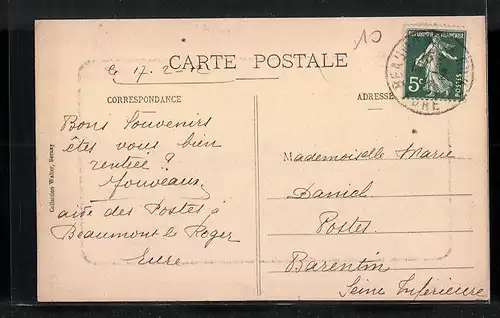 10
CARTE POSTALE
le 17.2-12
CORRESPONDANCE
Bons Souvenirs
êtes vous bien
rentrée ?
Jouveaux
aide des Postes
Beaumont le Roger
Eure
Collection Walter, Bernay
ADRESSE
Mademoiselle Marie
Daniel
Postes
Barentin
Seine Inférieure
RÉPUBLIQUE FRANÇAISE
5c
POSTES
BEAUM
EURE